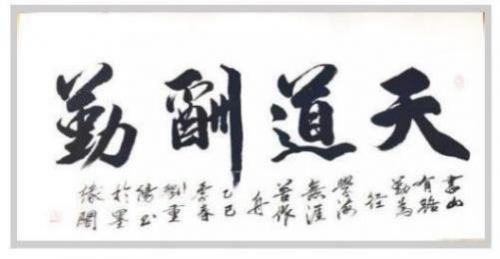 天道酬勤
書山
有路
勤為
徑
學海
無涯
苦作
舟
乙巳
季春
劉重
書
於墨
緣閣